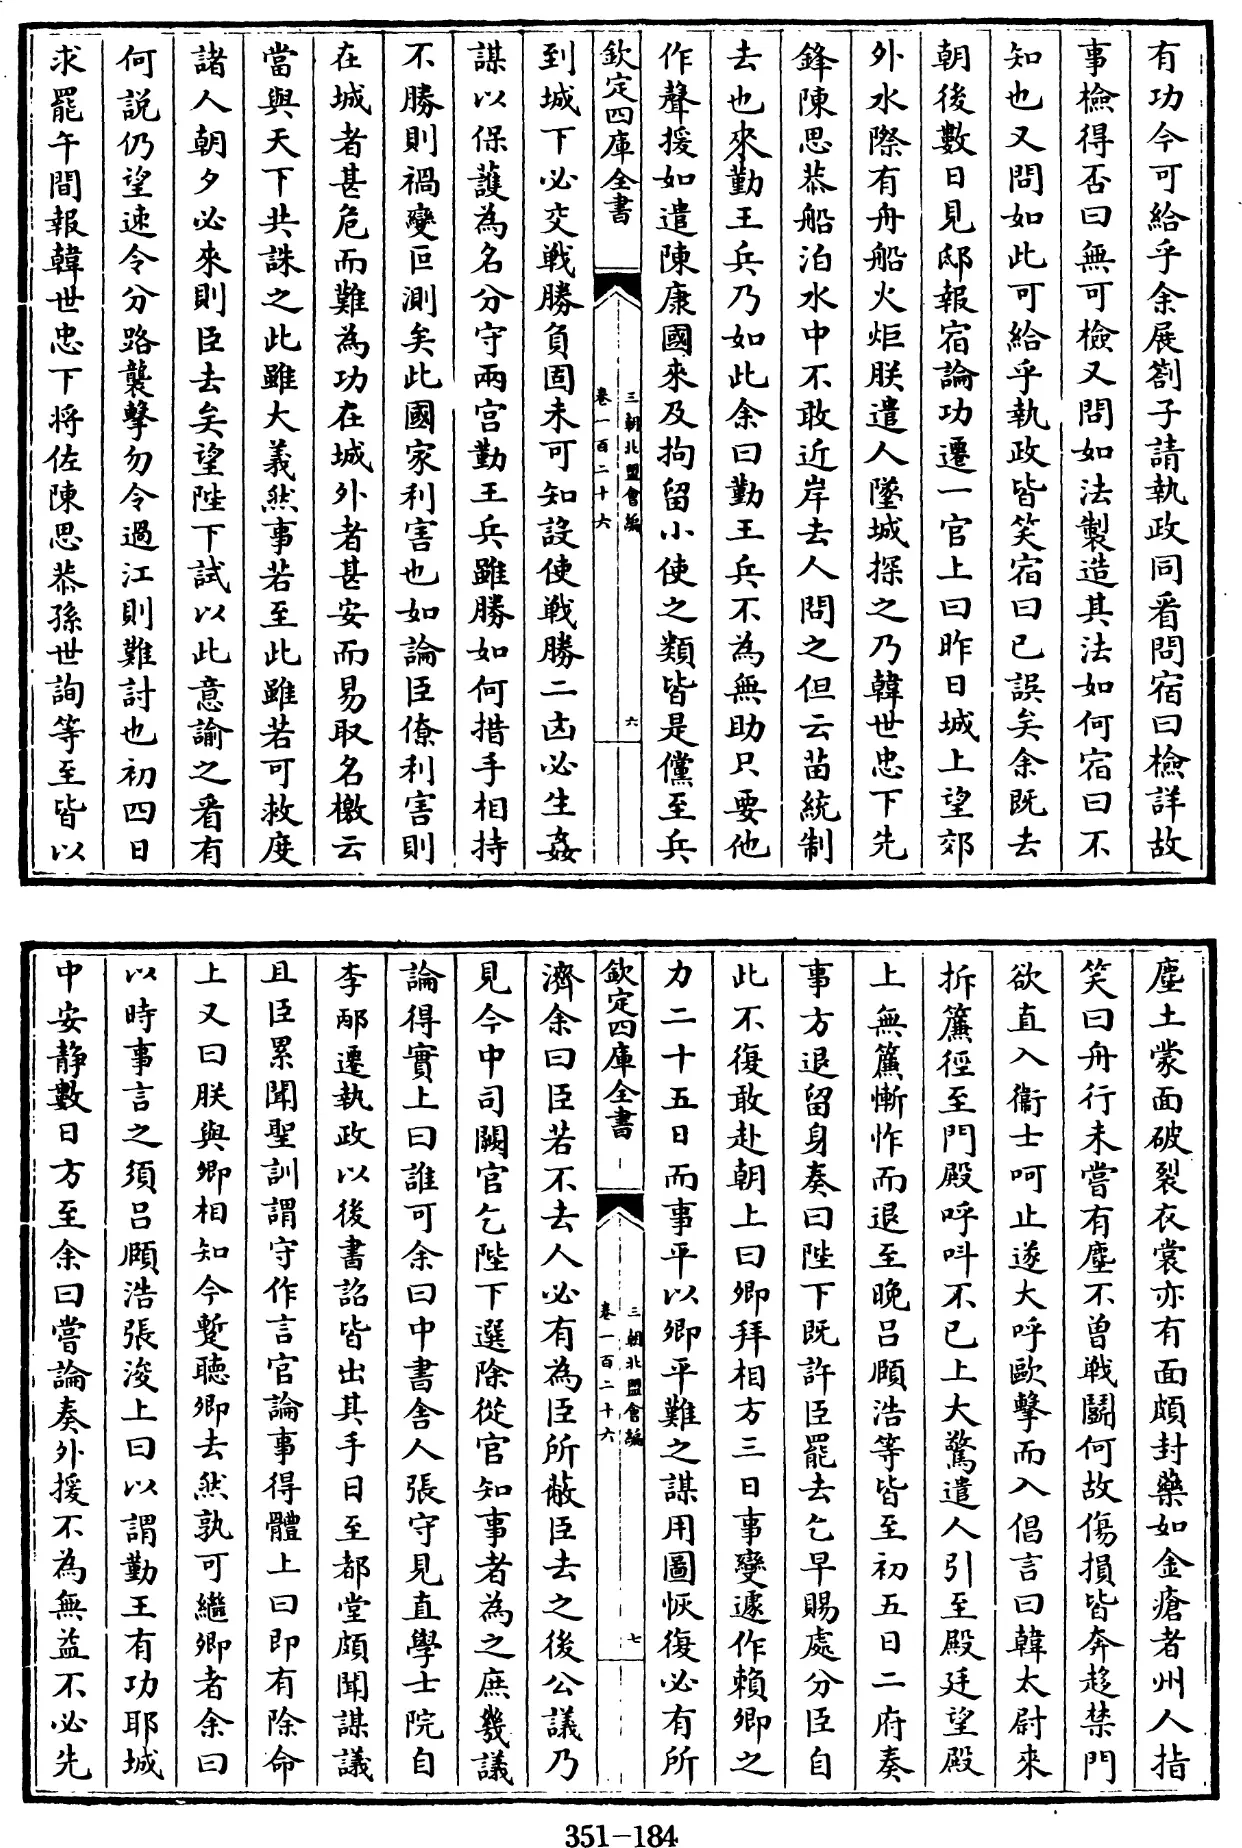 有功今可給乎余展劄子請執政同㸔問宿曰檢詳故
事檢得否曰無可檢又問如法製造其法如何宿曰不
知也又問如此可給乎執政皆笑宿曰已誤矣余既去
朝後數日見邸報宿論功遷一官上曰昨日城上望郊
外水際有舟船火炬朕遣人墜城探之乃韓世忠下先
鋒陳思恭船泊水中不敢近岸去人問之但云苗統制
去也來勤王兵乃如此余曰勤王兵不為無助只要他
作聲援如遣陳康國來及拘留小使之類皆是儻至兵
欽定四庫全書
三朝北盟會編
卷一百二十六
六
到城下必交戰勝負固未可知設使戰勝二凶必生姦
謀以保護為名分守兩宫勤王兵雖勝如何措手相持
不勝則禍變叵測矣此國家利害也如論臣僚利害則
在城者甚危而難為功在城外者甚安而易取名檄云
當與天下共誅之此雖大義然事若至此雖若可救度
諸人朝夕必來則臣去矣望陛下試以此意諭之㸔有
何説仍望速令分路襲擊勿令過江則難討也初四日
求罷午間報韓世忠下將佐陳思恭孫世詢等至皆以
塵土蒙面破裂衣裳亦有面頗封藥如金瘡者州人指
笑曰舟行未嘗有塵不曾戰鬭何故傷損皆奔趍禁門
欲直入衛士呵止遂大呼歐擊而入倡言曰韓太尉來
拆簾徑至門殿呼呌不已上大驚遣人引至殿廷望殿
上無簾慚怍而退至晚呂頤浩等皆至初五日二府奏
事方退留身奏曰陛下既許臣罷去乞早賜處分臣自
此不復敢赴朝上曰卿拜相方三日事變遽作賴卿之
力二十五日而事平以卿平難之謀用圖恢復必有所
欽定四庫全書
三朝北盟會編
卷一百二十六
七
濟余曰臣若不去人必有為臣所蔽臣去之後公議乃
見今中司闕官乞陛下選除從官知事者為之庶幾議
論得實上曰誰可余曰中書舍人張守見直學士院自
李邴遷執政以後書詔皆出其手日至都堂頗聞謀議
且臣累聞聖訓謂守作言官論事得體上曰即有除命
上又曰朕與卿相知今蹔聽卿去然孰可繼卿者余曰
以時事言之須呂頤浩張浚上曰以謂勤王有功耶城
中安静數日方至余曰嘗論奏外援不為無益不必先
351-184